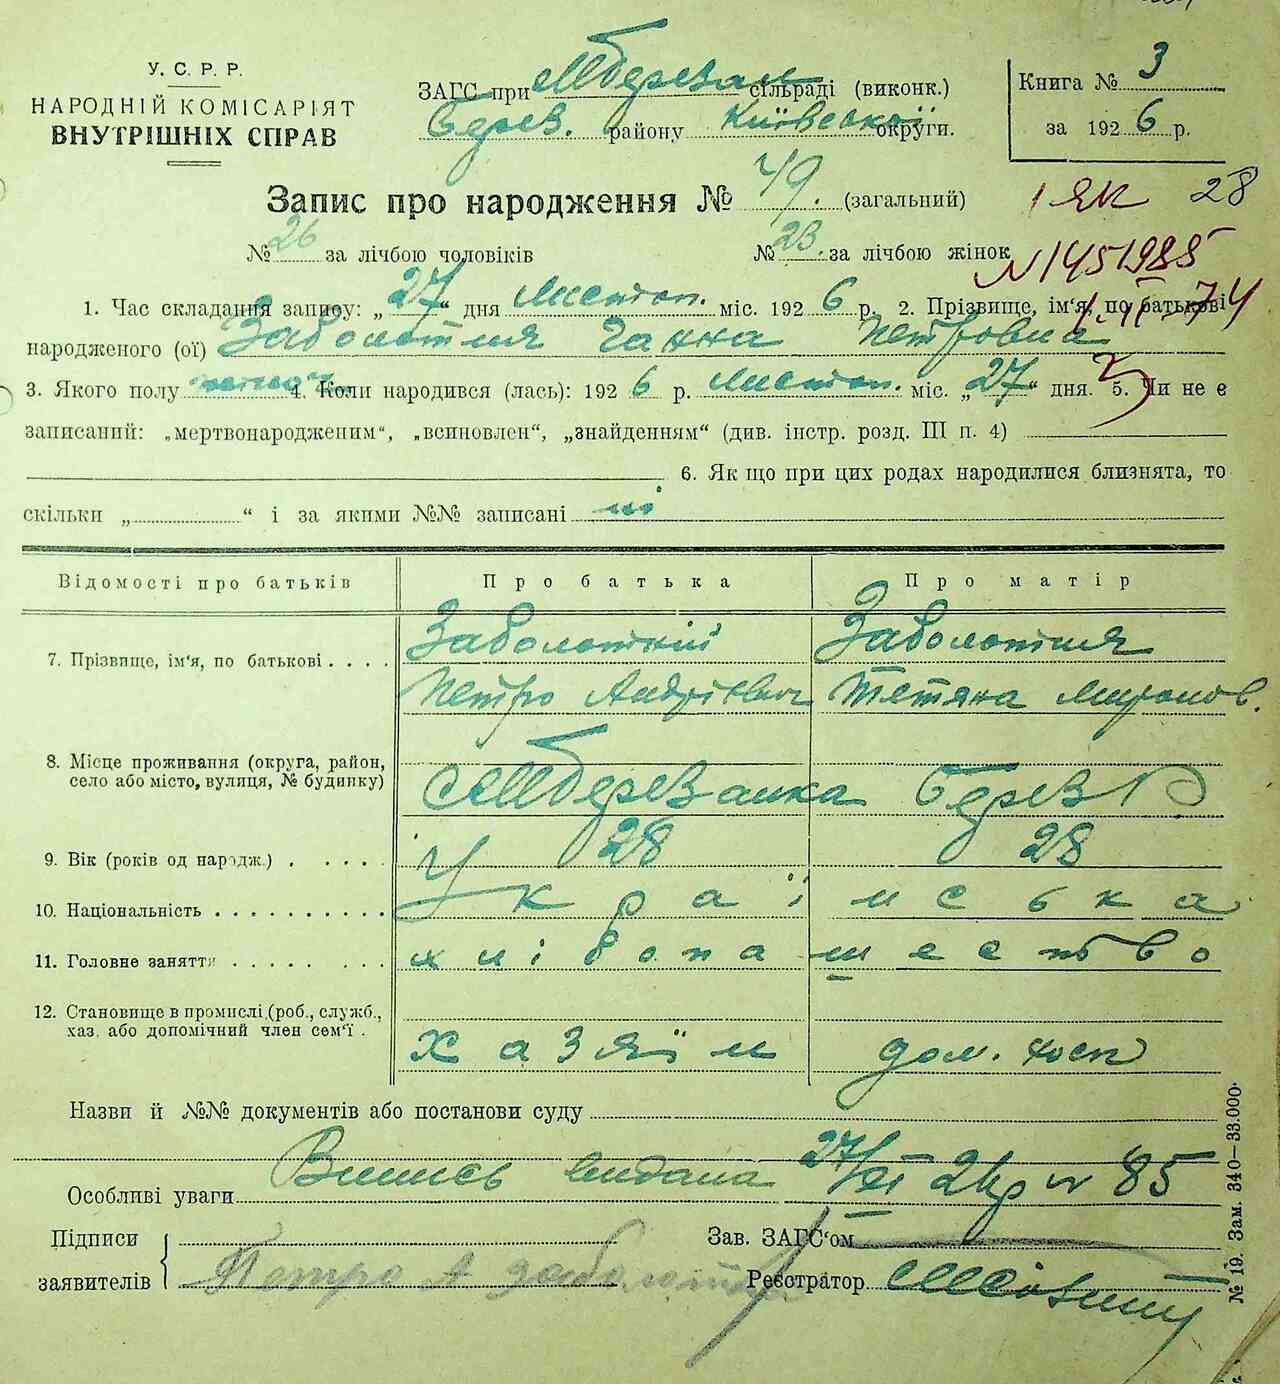 У. С. Р. Р.
НАРОДНІЙ КОМІСАРІЯТ
ВНУТРІШНІХ СПРАВ
ЗАГС при МБерезан сільраді (виконк.)
Берез. району Київської округи.
Книга № 3
за 1926 р.
Запис про народження № 49. (загальний)
1 ЯК 28
№ 26 за лічбою чоловіків № 23. за лічбою жінок
N 1451985
1. Час складання запису: „27“ дня Листоп. міс. 1926 р. 2. Прізвище, ім‘я, по батькові
народженого (ої) Заболотня Ганна Петровна
3. Якого полу 4. Коли народився (лась): 1926 р. Листоп. міс. „27“ дня. 5. Чи не є
записаний: „мертвонародженим“, „всиновлен“, „знайденням“ (див. інстр. розд. III п. 4)
6. Як що при цих родах народилися близнята, то
скільки „ “ і за якими №№ записані ні
Відомості про батьків Про батька Про матір
7. Прізвище, ім‘я, по батькові Заболотній Заболотня
Петро Андрієвич Тетяна Миронов.
8. Місце проживання (округа, район,
село або місто, вулиця, № будинку) сМБерезанка Берез Р
9. Вік (років од народж.) 28 28
10. Національність Українська
11. Головне заняття хлібопашество
12. Становище в промислі (роб., служб.,
хаз. або допомічний член сем‘ї. Хазяїн дом. хосп
Назви й №№ документів або постанови суду
Особливі уваги Випись видана 27/XI 26р N 85
Підписи
заявителів Петро А Заболотній
Зав. ЗАГС‘ом
Реєстратор
№ 19. Зам. 340—33.000.